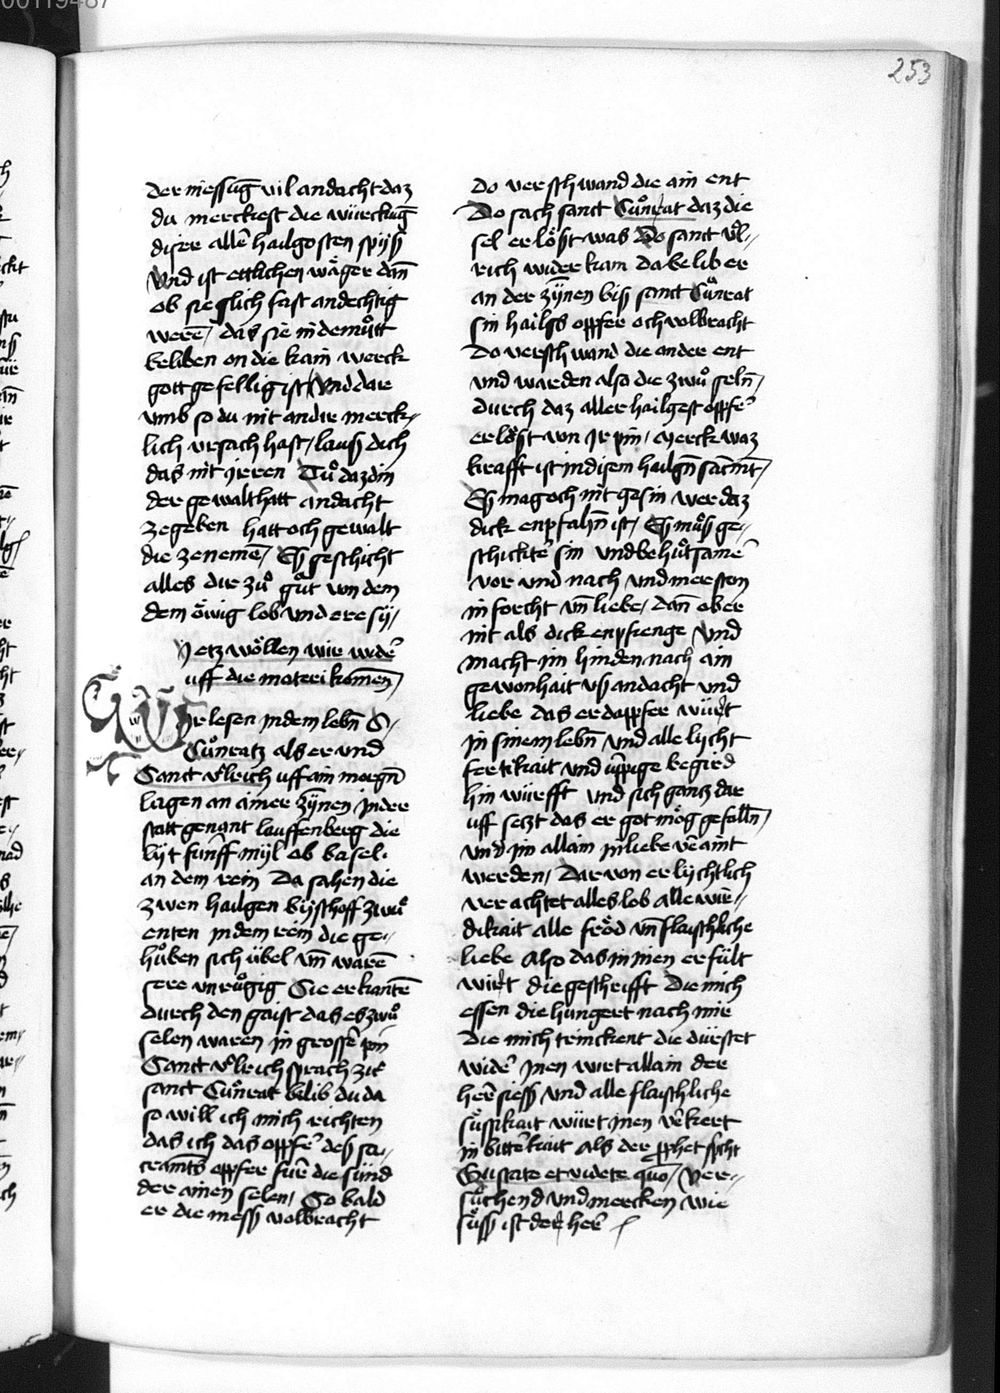 00119487
253
der niessūg vil andacht daz
du merckest die würckūg
diser allē hailgosten spijß
Vnd ist ettlichen wäger dañ
ob sie glich fast andechtig
werē / das sie in demuͦtt
beliben on die kain werck
gott gefellig ist / Vnd dar
vmb so du nit ander merck /
lich vrsach hast / lauß dich
das nit jrren Tuͦ daz din
der gewalt hatt andacht
ze geben hatt och gewalt
die ze nemē / Eß geschicht
alles dir zuͦ guͦt von dem
dem öwig lob vnd ere sij /
Yetz wöllen wir widē
uff die materi komen /
Wir lesen in dem lebñ S /
Cuͦnratz als er vnd
Sanct vͦlrich uff ain morgñ
lagen an ainer zynnen in der
statt genant lauffenberg die
lyt fünff mijl ob basel .
an dem rein Da sahen die
zwen hailgen bijschoff zwuͦ
enten in dem rein die ge /
huͦben sich übel vñ warē
sere vnruͦgig Sie erkantē
durch den gaist das es zwuͦ
selen waren in grossē pin
Sanct vͦlrich sprach zuͦ
sanct Cuͦnrat bilib du da
so will ich mich richten
das ich das oppfē deß sa /
cramētˢ oppfer fürē die sünd
der ainen selen / So bald
er die meß volbracht
Do verschwand die ain ent
Do sach sanct Cuͦnrat daz die
sel erlößt was Do sanct vͦl /
rich wider kam da belib er
an der zynnen biß sanct Cuͦnrat
sin hailgs oppfer och volbracht
Do verschwand die ander ent
vnd warden also die zwuͦ selñ /
durch daz aller hailgest oppfē
erlößt von jr pin / Merck waz
krafft ist in disem hailgñ sacmēt /
Eß mag och nit gesin wer daz
dick enpfahñ ist / Eß muͦß ge /
schicktē sin vnd behuͦtsamē
vor vnd nach vnd meerston
in forcht vñ liebe / dañ ob er
nit als dick enpfienge Vnd
macht im hinden nach ain
gewonhait uß andacht vnd
liebe das er dappfer würt
in sinem lebñ vnd alle lycht
fertikait vnd üppige begird
hin würfft vnd sich gantz dar
uff setzt das er got mög gefallñ /
vnd im allain in liebe verāint
werden / Dar von er lychtlich
verachtet alles lob alle wir /
dikait alle fröd vñ flaischliche
liebe Also das in inen erfült
wirt die geschrifft Die mich
essen die hungert nach mir
Die mich trinckent die dürstet
widē Inen wirt allain der
herr sieß vnd alle flaischliche
suͦssikait würt inen vērkert
in bittērkait als der pphet spcht
Gustate et videte quo / Ver /
suͦchend vnd mercken wie
suͦß ist der herr /